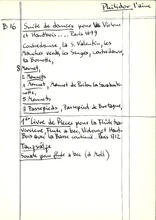 Philidor, l'aîné
B.16 Suite de danses pour les Violons
et Hautbois .... Paris 1699
Contredanse, La S. Valentin, les
Manches vertes, les Singes, contredanse,
la Bonnette,
8 Menuet,
2 Menuets
1 Menuet, Menuet de Poitou la
5 Menuets
3 Passepieds, Passepied de Bretagne,
1er Livre de Pièces pour la Flûte tra-
versière, Flûte à bec, Violons et Haut-
bois avec la Basse continue. Paris 1712
Sonate pour flûte à bec (d Moll)